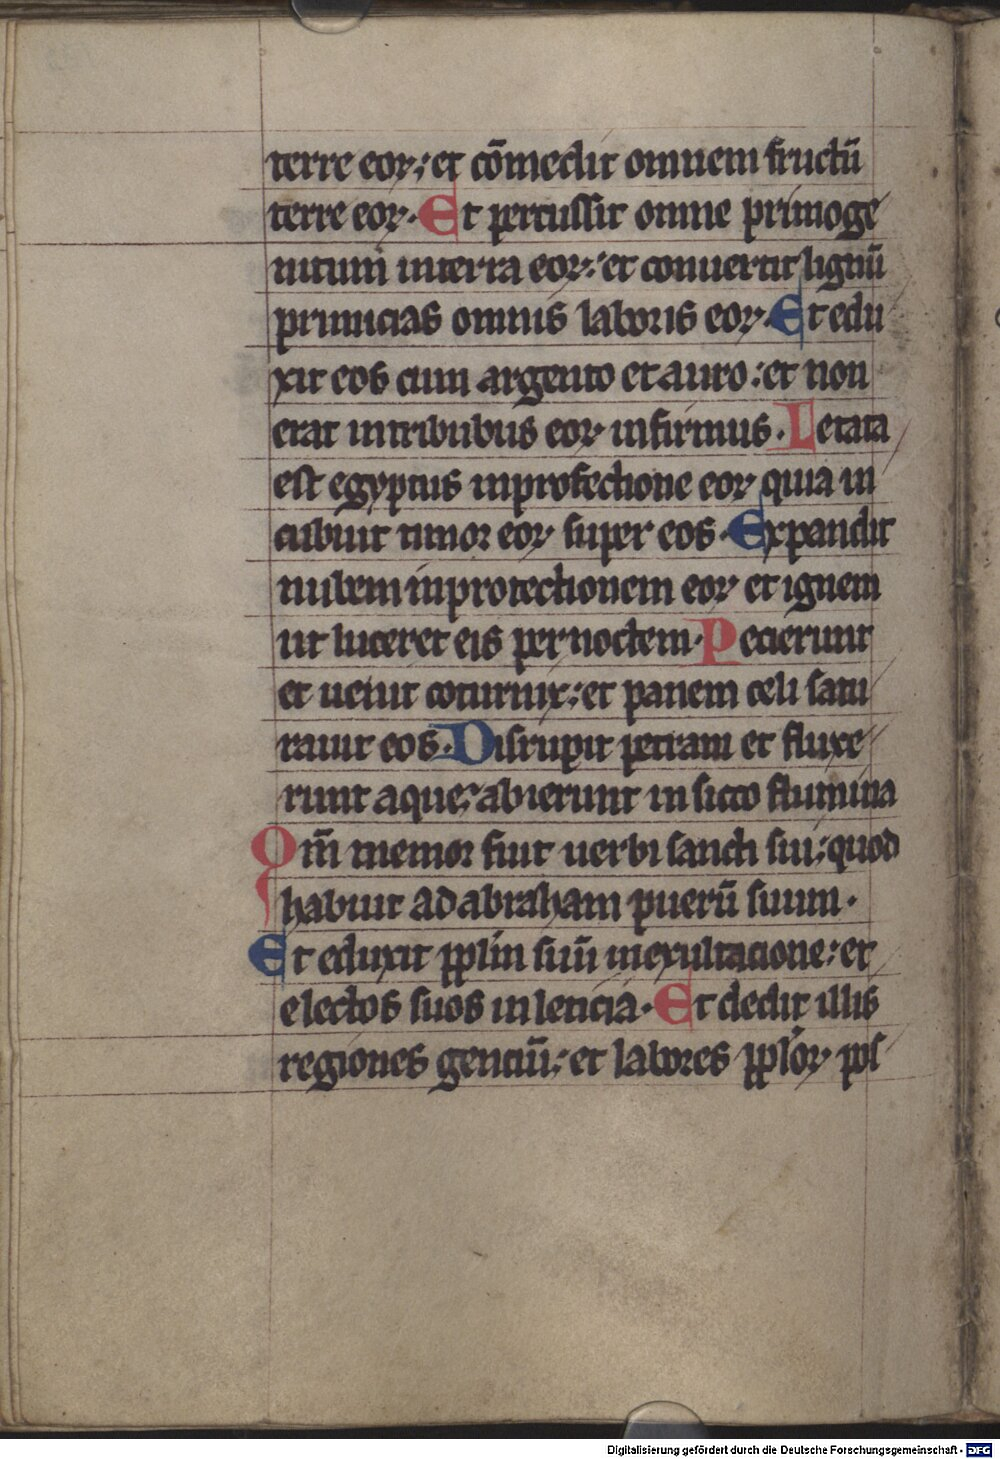 terre eoꝝ: et cōmedit omnem fructū
terre eoꝝ. Et percussit omne primoge
nitum in terra eoꝝ: et conuertit lignū
primicias omnis laboris eoꝝ. Et edu
xit eos cum argento et auro: et non
erat in tribubus eoꝝ infirmus. Letata
est egyptus in profectione eoꝝ quia in
cubuit timor eoꝝ super eos. Expandit
nubem in protectionem eoꝝ et ignem
ut luceret eis per noctem. Pecierunt
et uenit coturnix: et panem celi satu
rauit eos. Disrupit petram et fluxe
runt aque: abierunt in sicco flumina
Qm̄ memor fuit uerbi sancti sui: quod
habuit ad abraham puerū suum.
Et eduxit ppl̄m suū in exultacione: et
electos suos in leticia. Et dedit illis
regiones genciū: et labores ppl̄oꝝ pos
Digitalisierung gefördert durch die Deutsche Forschungsgemeinschaft - DFG